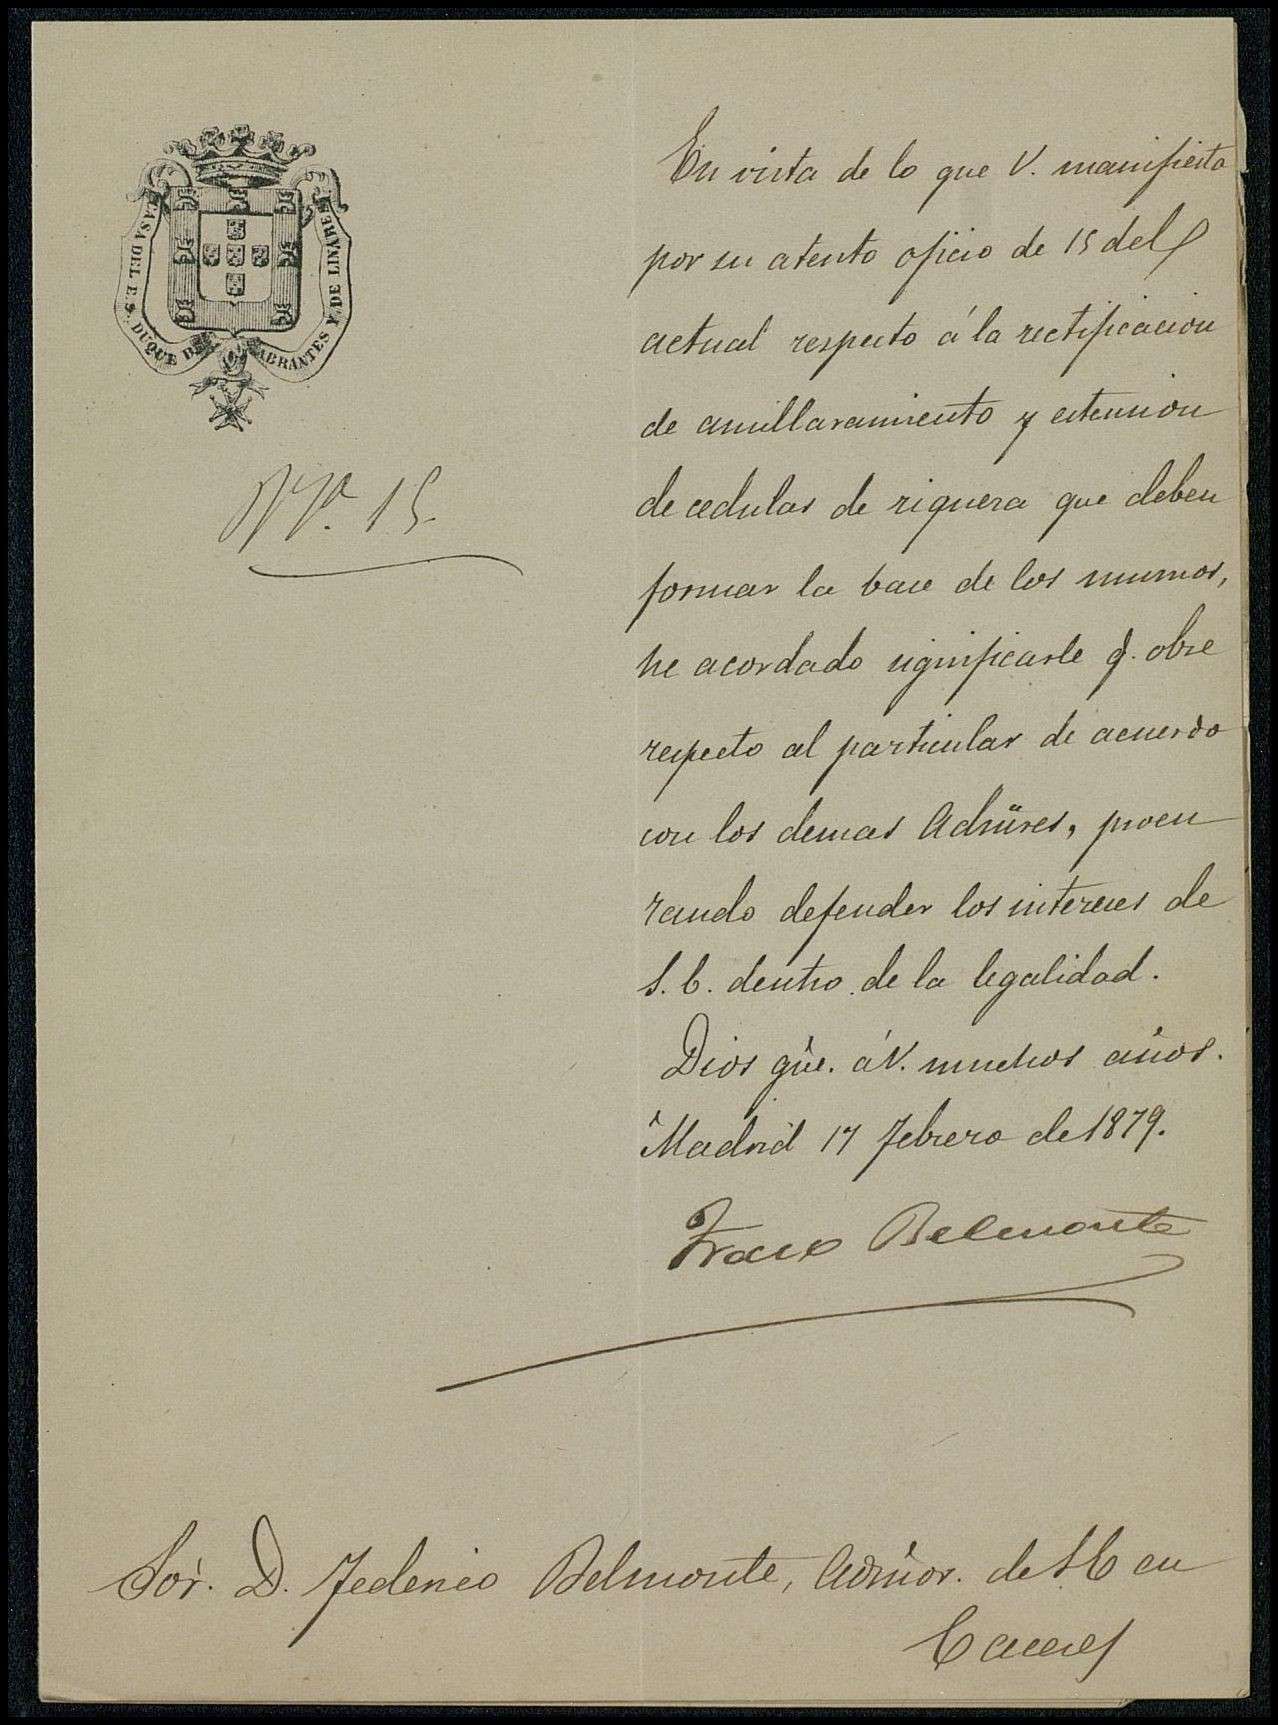 CASA DEL E. S. DUQUE DE ABRANTES Y DE LINARES
Nº. 15.
En vista de lo que V. manifiesta
por su atento oficio de 15 del
actual respecto á la rectificacion
de amillaramiento y estension
de cedulas de riqueza que deben
formar la base de los mismos,
he acordado significarle q. obre
respecto al particular de acuerdo
con los demas Admres, procu
rando defender los intereses de
S. E. dentro de la legalidad.
Dios gue. á V. muchos años.
Madrid 17 Febrero de 1879.
Franco Belmonte
Sor. D. Federico Belmonte, Admor. de S E en
Caceres